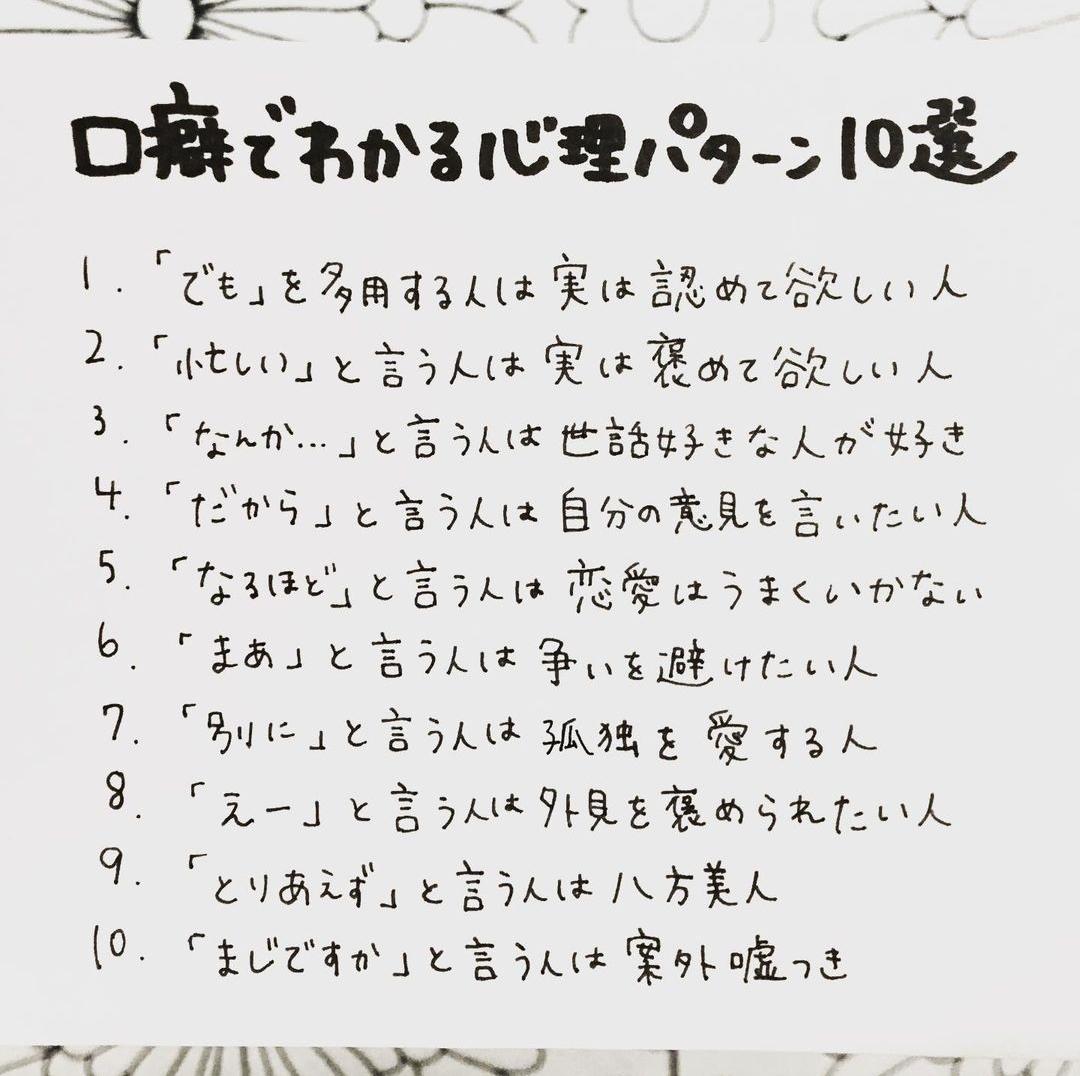 口癖でわかる心理パターン10選
1. 「でも」を多用する人は実は認めて欲しい人
2. 「忙しい」と言う人は実は褒めて欲しい人
3. 「なんか…」と言う人は世話好きな人が好き
4. 「だから」と言う人は自分の意見を言いたい人
5. 「なるほど」と言う人は恋愛はうまくいかない
6. 「まあ」と言う人は争いを避けたい人
7. 「別に」と言う人は孤独を愛する人
8. 「えー」と言う人は外見を褒められたい人
9. 「とりあえず」と言う人は八方美人
10. 「まじですか」と言う人は案外嘘つき